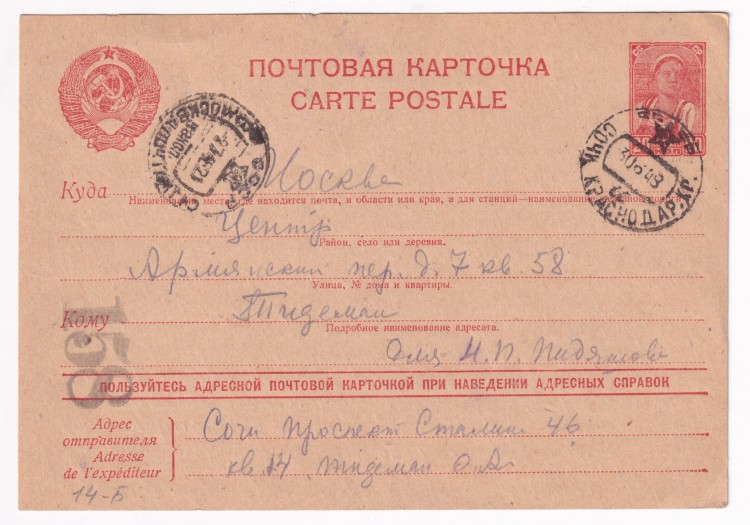 ПОЧТОВАЯ КАРТОЧКА
CARTE POSTALE
СОЧИ КРАСНОДАР.КР.
30 6 48
Куда Москва
Наименование места, где находится почта, и области или края, а для станций—наименование железной дороги
Центр
Район, село или деревня.
Армянский пер. д. 7 кв. 58
Улица, № дома и квартиры.
Кому Тидеман
Подробное наименование адресата.
Для Н. П.
158
ПОЛЬЗУЙТЕСЬ АДРЕСНОЙ ПОЧТОВОЙ КАРТОЧКОЙ ПРИ НАВЕДЕНИИ АДРЕСНЫХ СПРАВОК
Адрес
отправителя
Adresse
de l'expéditeur
Сочи Проспект Сталина 46
кв. 14 Тидеман О. А.
14-Б